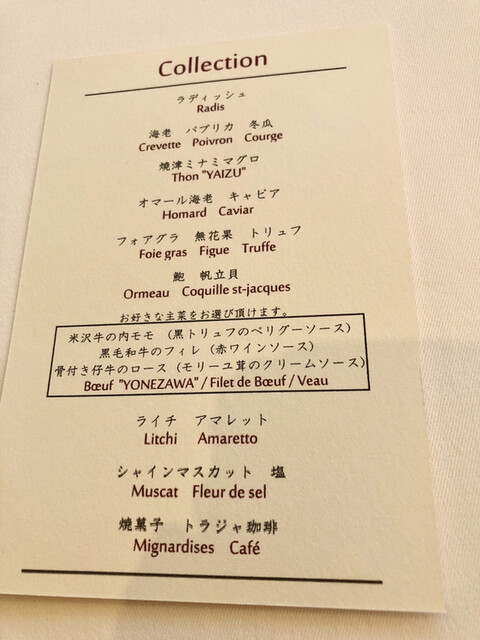 Collection
ラディッシュ
Radis
海老 パプリカ 冬瓜
Crevette Poivron Courge
焼津ミナミマグロ
Thon "YAIZU"
オマール海老 キャビア
Homard Caviar
フォアグラ 無花果 トリュフ
Foie gras Figue Truffe
鮑 帆立貝
Ormeau Coquille st-jacques
お好きな主菜をお選び頂けます。
米沢牛の内モモ (黒トリュフのペリグーソース)
黒毛和牛のフィレ (赤ワインソース)
骨付き仔牛のロース (モリーユ茸のクリームソース)
Bœuf "YONEZAWA" / Filet de Bœuf / Veau
ライチ アマレット
Litchi Amaretto
シャインマスカット 塩
Muscat Fleur de sel
焼菓子 トラジャ珈琲
Mignardises Café